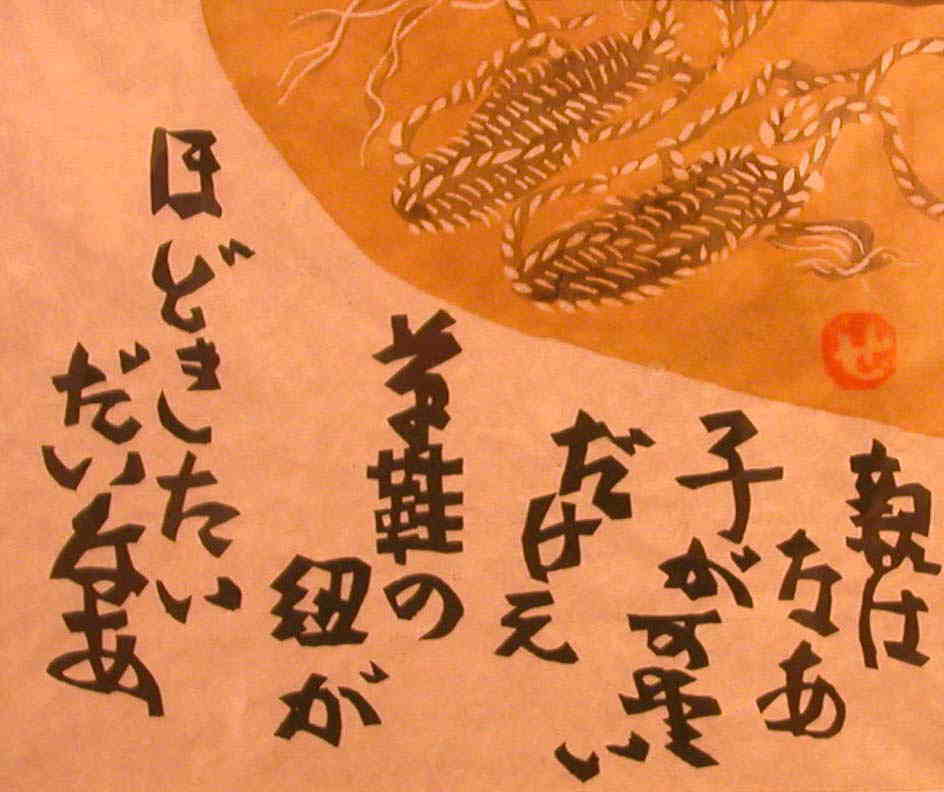 親は
なあ
子が可愛い
だけえ
草鞋の
紐が
ほどきたい
だいなあ
せ